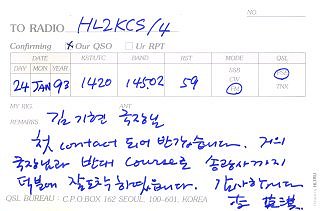 NO.
TO RADIO HL2KCS/4
Confirming ☒ Our QSO ☐ Ur RPT
DATE KST/UTC BAND RST MODE QSL
DAY MON YEAR SSB PSE
24 JAN 93 1420 145.02 59 CW FM TNX
MY RIG. ANT
REMARKS 김기현 국장님
첫 contact 되어 반갑습니다. 저의
국장님과 반대 course로 송광사까지
덕분에 잘 도착하였습니다. 감사합니다
QSL BUREAU - C.P.O.BOX 162 SEOUL, 100-601, KOREA